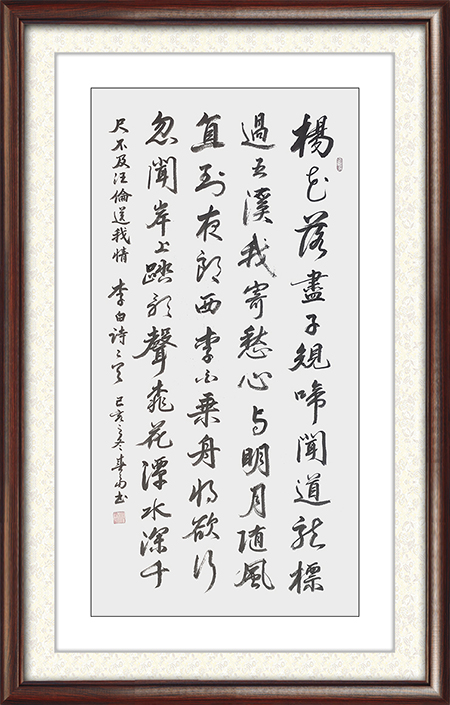 楊花落盡子規啼聞道龍標
過五溪我寄愁心与明月随風
直到夜郎西李白乘舟将欲行
忽聞岸上踏歌聲桃花潭水深千
尺不及汪倫送我情 李白詩二首 己亥之冬春书